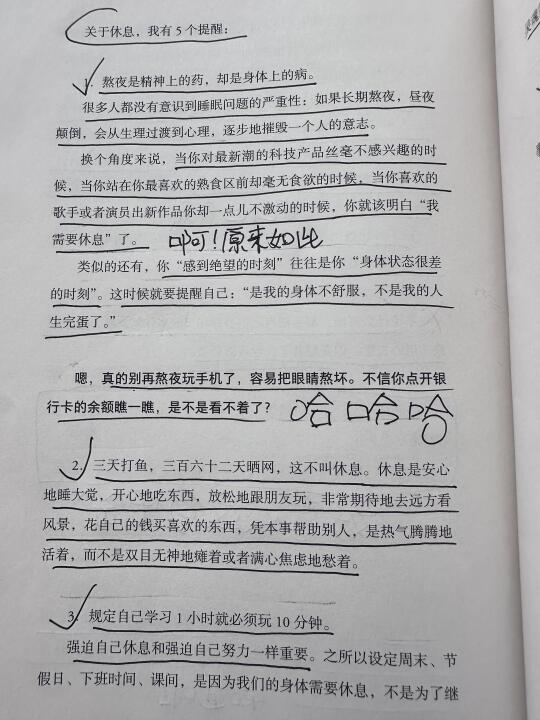 关于休息，我有5个提醒：
1. 熬夜是精神上的药，却是身体上的病。
很多人都没有意识到睡眠问题的严重性：如果长期熬夜，昼夜
颠倒，会从生理过渡到心理，逐步地摧毁一个人的意志。
换个角度来说，当你对最新潮的科技产品丝毫不感兴趣的时
候，当你站在你最喜欢的熟食区前却毫无食欲的时候，当你喜欢的
歌手或者演员出新作品你却一点儿不激动的时候，你就该明白“我
需要休息”了。 啊！原来如此
类似的还有，你“感到绝望的时刻”往往是你“身体状态很差
的时刻”。这时候就要提醒自己：“是我的身体不舒服，不是我的人
生完蛋了。”
嗯，真的别再熬夜玩手机了，容易把眼睛熬坏。不信你点开银
行卡的余额瞧一瞧，是不是看不着了？ 哈哈哈
2. 三天打鱼，三百六十二天晒网，这不叫休息。休息是安心
地睡大觉，开心地吃东西，放松地跟朋友玩，非常期待地去远方看
风景，花自己的钱买喜欢的东西，凭本事帮助别人，是热气腾腾地
活着，而不是双目无神地瘫着或者满心焦虑地愁着。
3. 规定自己学习1小时就必须玩10分钟。
强迫自己休息和强迫自己努力一样重要。之所以设定周末、节
假日、下班时间、课间，是因为我们的身体需要休息，不是为了继